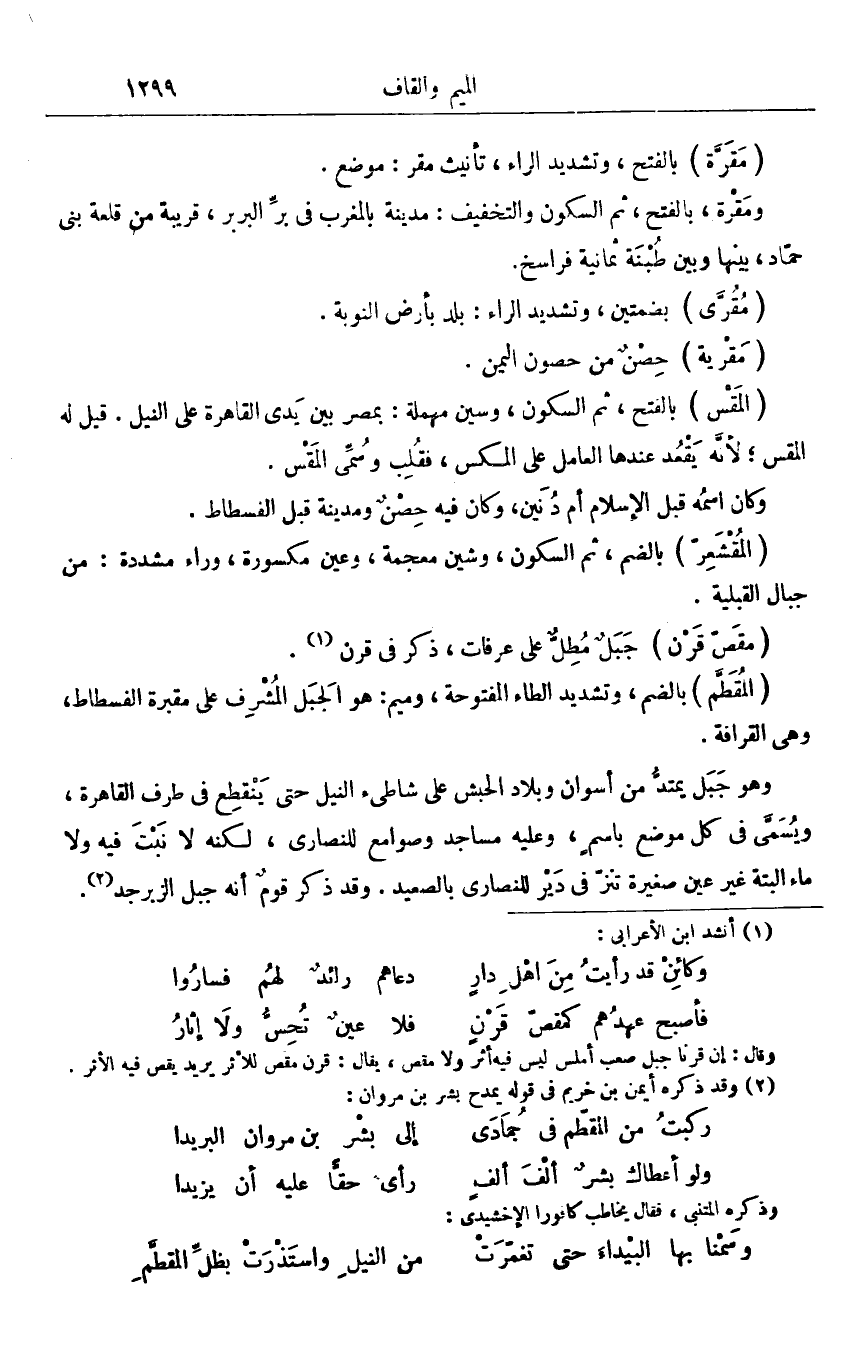 الميم والقاف ١٢٩٩
( مَقَرَّة ) بالفتح ، وتشديد الراء ، تأنيث مقر : موضع .
ومَقْرة ، بالفتح ، ثم السكون والتخفيف : مدينة بالمغرب فى برِّ البربر ، قريبة من قلعة بنى
حمّاد ، بينها وبين طُبْنَة ثمانية فراسخ.
( مُقُرَّى ) بضمتين ، وتشديد الراء : بلد بأرض النوبة .
( مَقْرية ) حِصْنٌ من حصون اليمن .
( المَقْس ) بالفتح ، ثم السكون ، وسين مهملة : بمصر بين يَدى القاهرة على النيل . قيل له
المقس ؛ لأنَّه يَقْعُد عندها العامل على المكس ، فقُلِب وسُمِّى المَقْس .
وكان اسمُه قبل الإسلام أم دُنَين، وكان فيه حِصْنٌ ومدينة قبل الفسطاط .
( المُقْشَعِرّ ) بالضم ، ثم السكون ، وشين معجمة ، وعين مكسورة ، وراء مشددة : من
جبال القبلية .
( مقَصّ قَرْن ) جَبَلٌ مُطِلٌّ على عرفات ، ذكر فى قرن (١) .
( المُقَطَّم ) بالضم ، وتشديد الطاء المفتوحة ، وميم: هو الجَبَل المُشْرِف على مقبرة الفسطاط،
وهى القرافة .
وهو جَبَل يمتدُّ من أسوان وبلاد الحبش على شاطىء النيل حتى يَنْقطِع فى طرف القاهرة ،
ويُسَمَّى فى كل موضع باسمٍ ، وعليه مساجد وصوامع للنصارى ، لكنه لا نَبْتَ فيه ولا
ماء البتة غير عين صغيرة تنزّ فى دَيْر للنصارى بالصعيد . وقد ذكر قومٌ أنه جبل الزبرجد(٢).
(١) أنشد ابن الأعرابى :
وكائِنْ قد رأيتُ مِنَ اهْلِ دارٍ دعاهم رائدٌ لهُم فساروا
فأصبح عهدُهم كمقصّ قَرْنٍ فلا عينٌ تُحِسُّ ولَا إثارُ
وقال : إن قرنا جبل صعب أملس ليس فيه أثر ولا مقص ، يقال : قرن مقص للأثر يريد يقص فيه الأثر .
(٢) وقد ذكره أيمن بن خريم فى قوله يمدح بشر بن مروان :
ركبتُ من المقطّم فى جُمادَى إلى بشْر بن مروان البريدا
ولو أعطاك بشرٌ ألْفَ ألفٍ رأى حقًّا عليه أن يزيدا
وذكره المتنبى ، فقال يخاطب كافورا الإخشيدى :
وسَمْنا بها البَيْداءَ حتى تغمّرَتْ من النيلِ واستَذْرَتْ بظلِّ المقطَّمِ